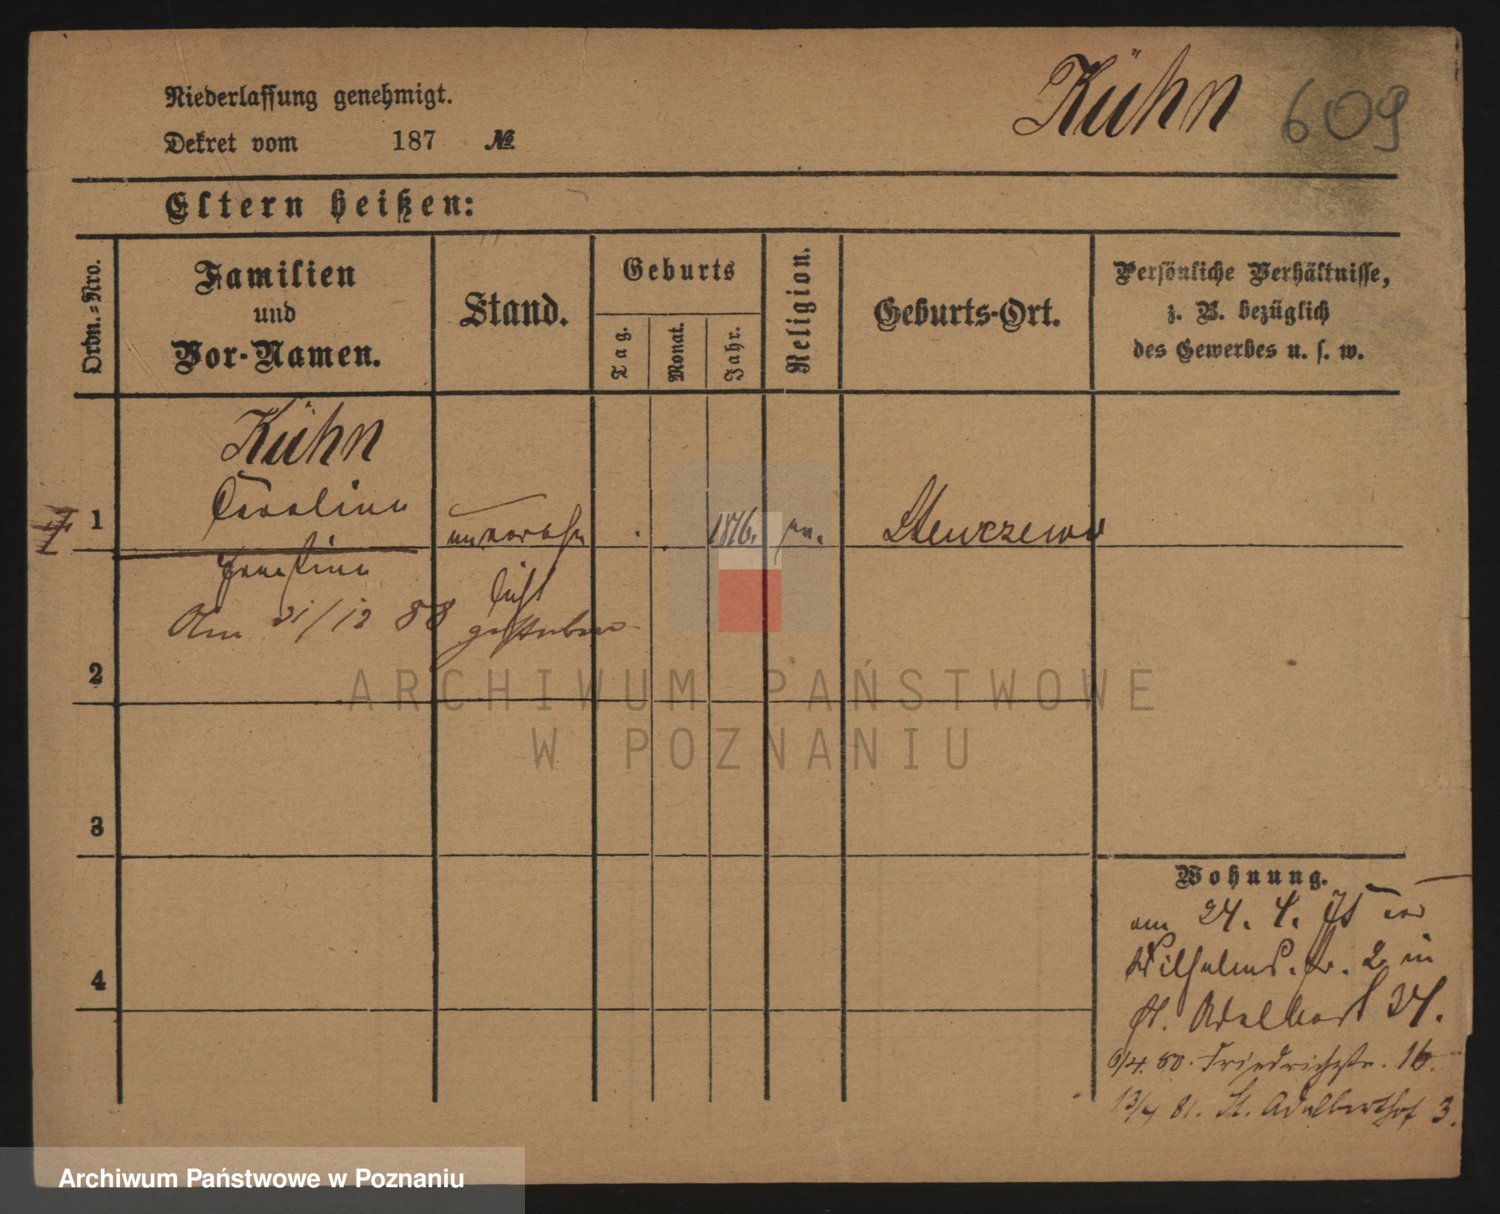 Kühn 609
Niederlassung genehmigt.
Dekret vom 187 №
Eltern heißen:
Ordn.-Nro.
Familien
und
Vor-Namen.
Stand.
Geburts
Tag.
Monat.
Jahr.
Religion.
Geburts-Ort.
Persönliche Verhältnisse,
z. B. bezüglich
des Gewerbes u. s. w.
Kühn
1 Caroline
Ernestine
Am 21/12 88 gestorben
2
3
4
Wohnung.
am 24. 4. von
Wilhelmstr. 2 in
St. Adalbert 34.
6/4. 80. Friedrichstr. 16.
13/4 81. St. Adalberthof 3.
ARCHIWUM PAŃSTWOWE
W POZNANIU
Archiwum Państwowe w Poznaniu